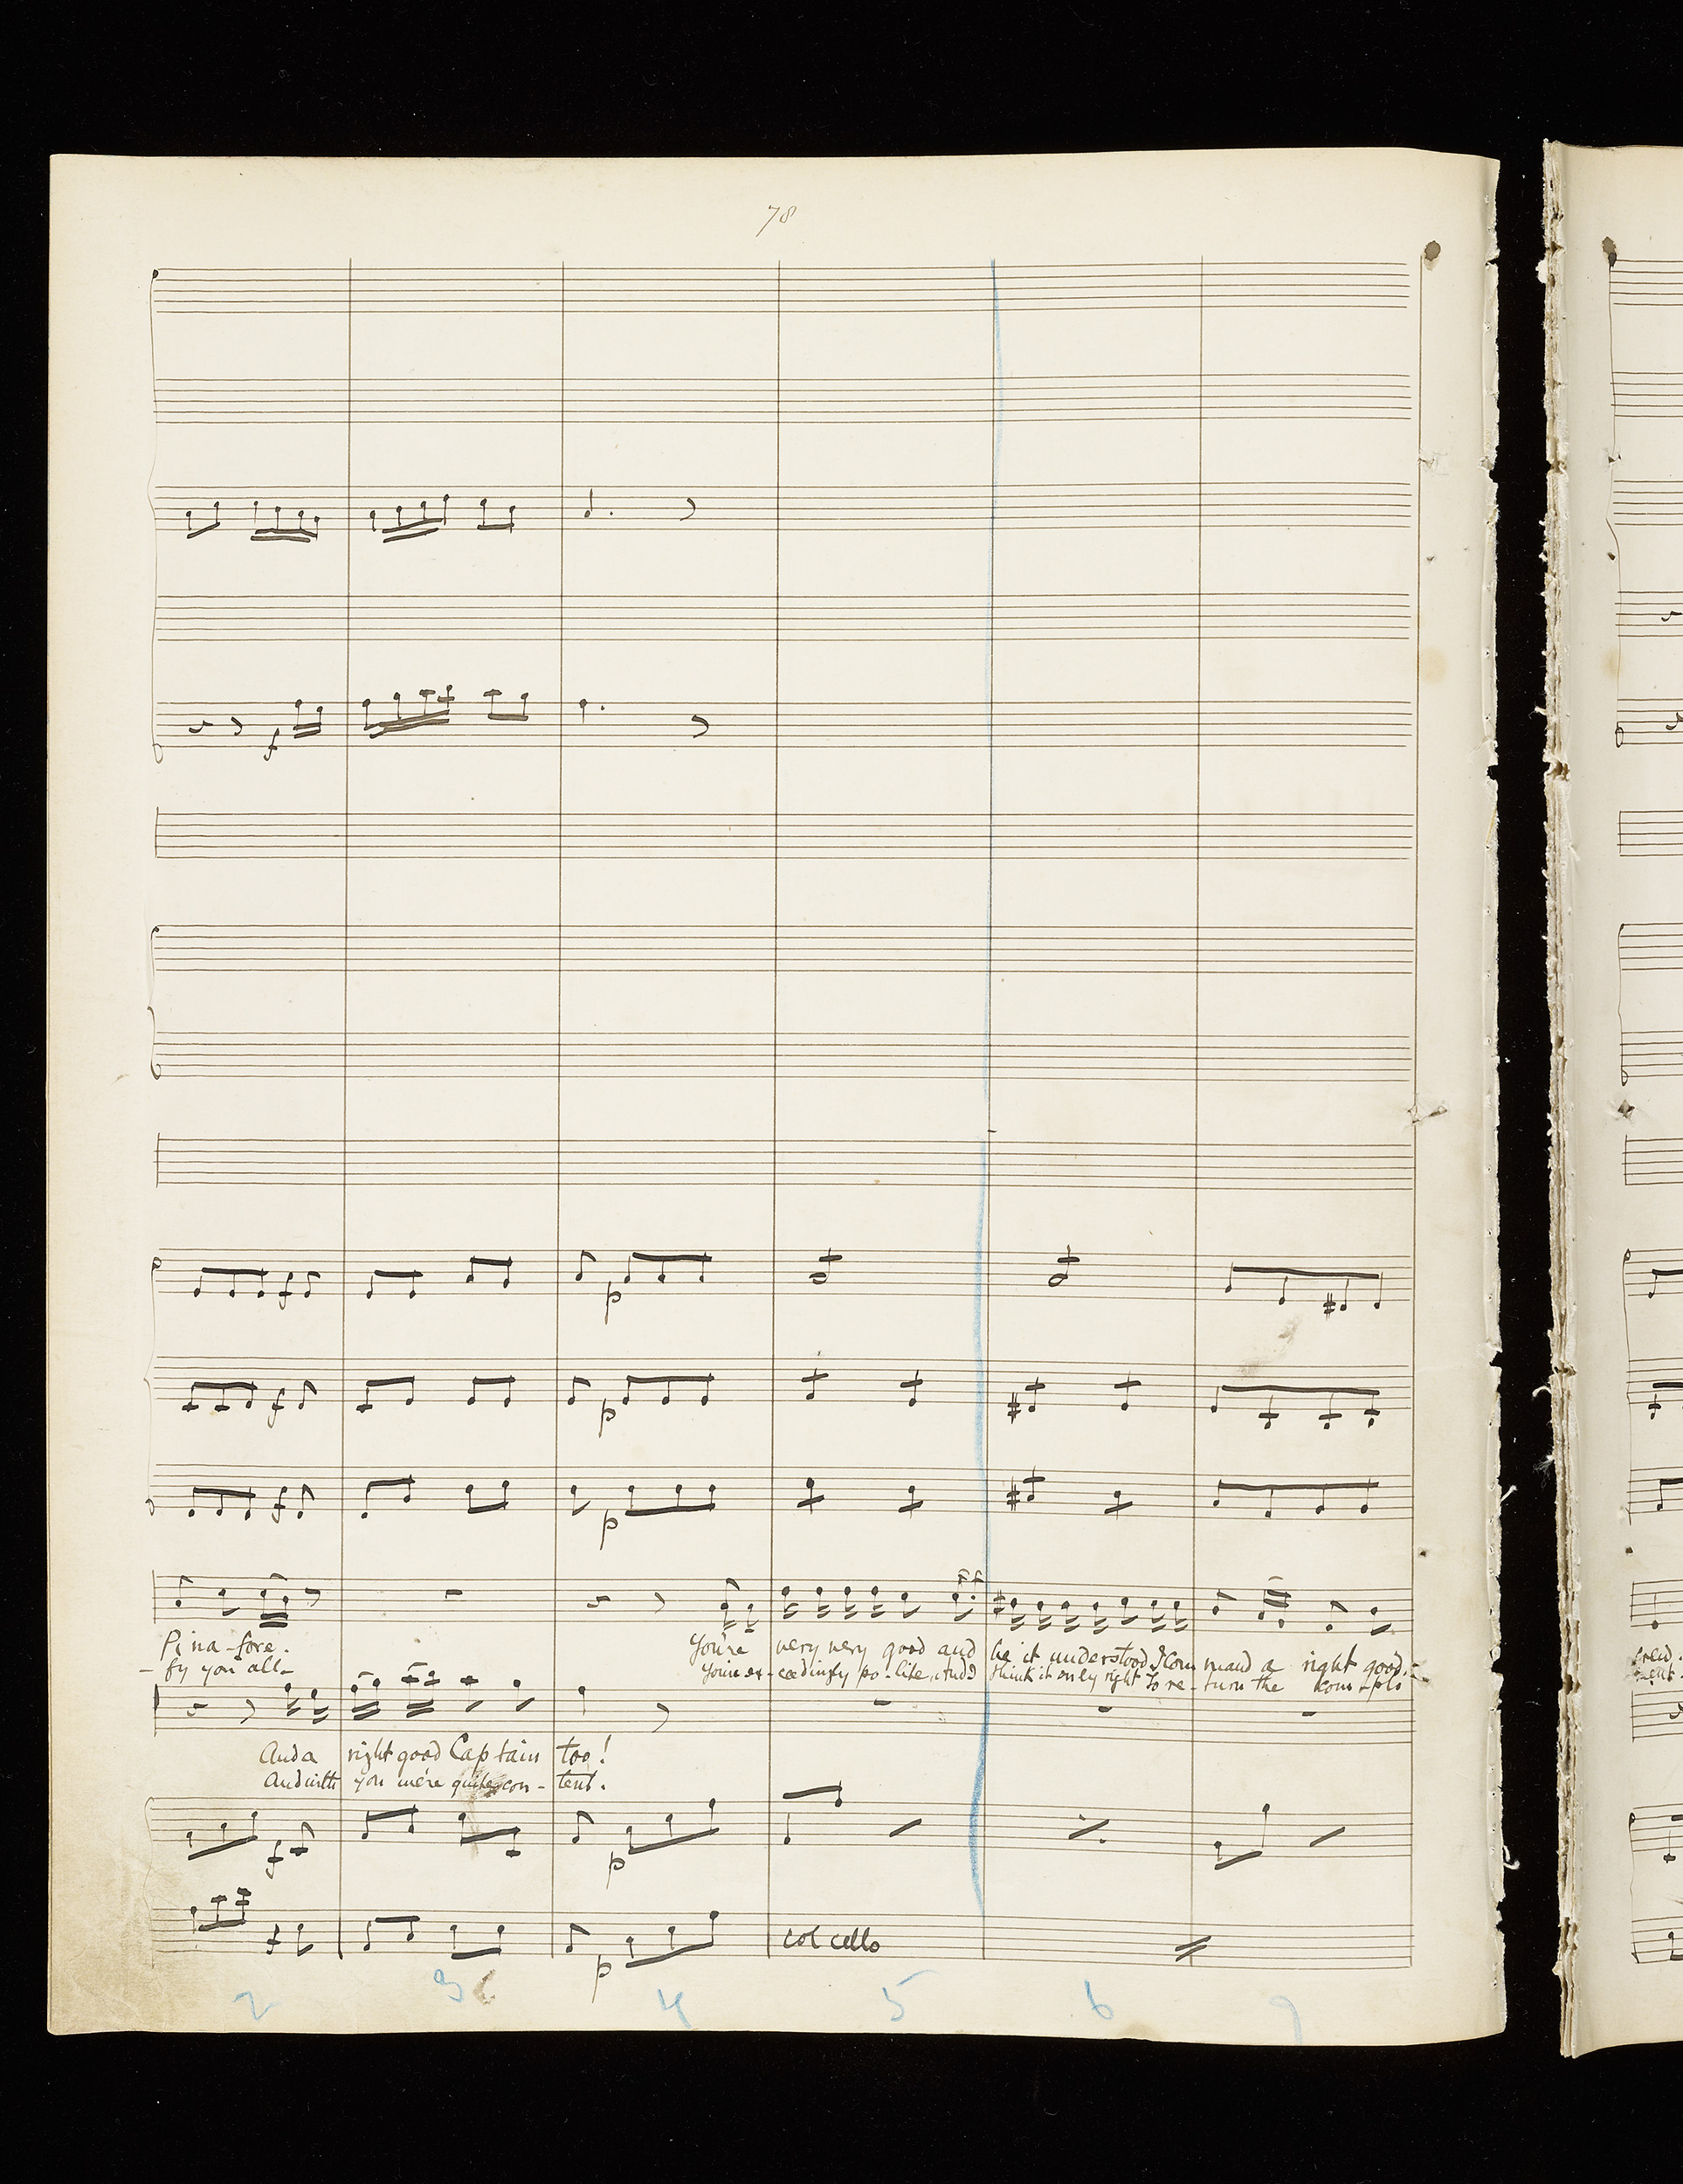 78
f
f
p
f
p
f
p
Pina-fore. You're very very good and be it understood I command a right good.
-fy you all- You're ex-ceedingly po-lite, and I think it only right To re-turn the com-pli
And a right good Captain too!
And with you we're quite con-tent.
f
p
f
p
col cello
2 3 4 5 6 7
crew.